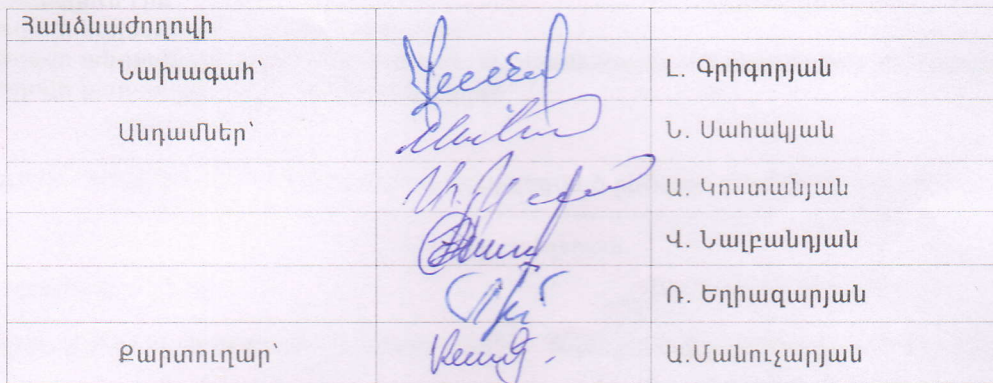 Հանձնաժողովի
Նախագահ՝ Լ. Գրիգորյան
Անդամներ՝ Ն. Սահակյան
Ա. Կոստանյան
Վ. Նալբանդյան
Ռ. Եղիազարյան
Քարտուղար՝ Ա.Մանուչարյան